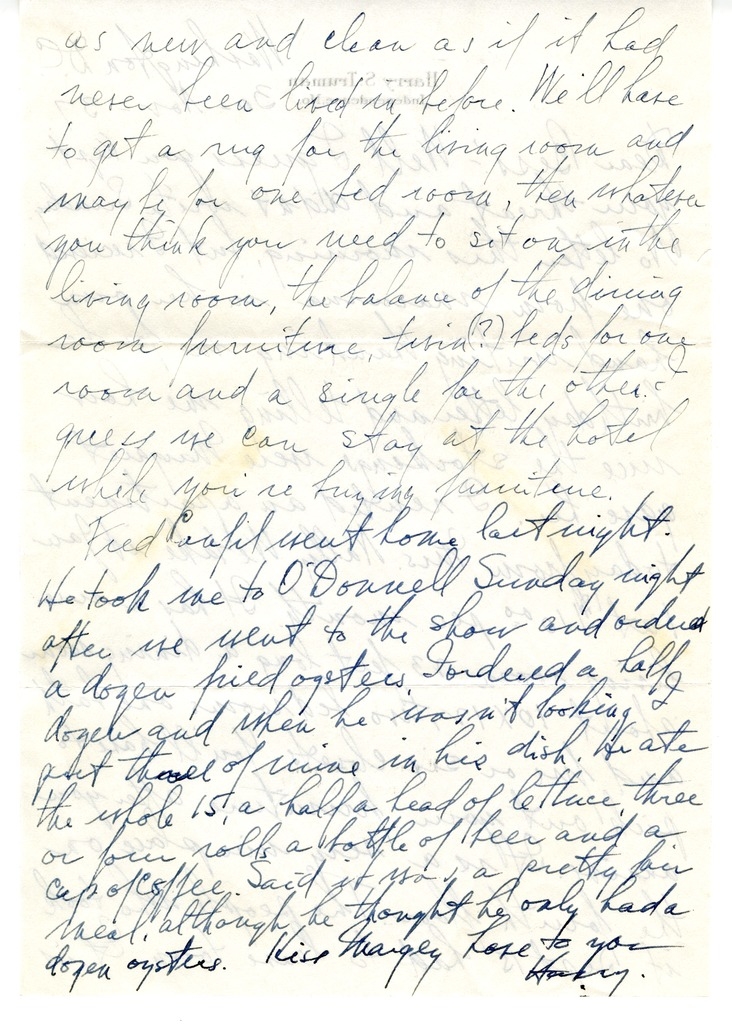 as new and clean as if it had
never been lived in before. We'll have
to get a rug for the living room and
may be for one bed room, then whatever
you think you need to sit on in the
living room, the balance of the dining
room furniture, twin(?) beds for one
room and a single for the other. I
guess we can stay at the hotel
while you're buying furniture.
Fred Canfil went home last night.
He took me to O'Donnell Sunday night
after we went to the show and ordered
a dozen fried oysters. I ordered a half
dozen and when he wasn't looking I
put three of mine in his dish. He ate
the whole 15, a half a head of lettuce, three
or four rolls a bottle of beer and a
cup of coffee. Said it was a pretty fair
meal, although he thought he only had a
dozen oysters. Kiss Margey Love to you
Harry.